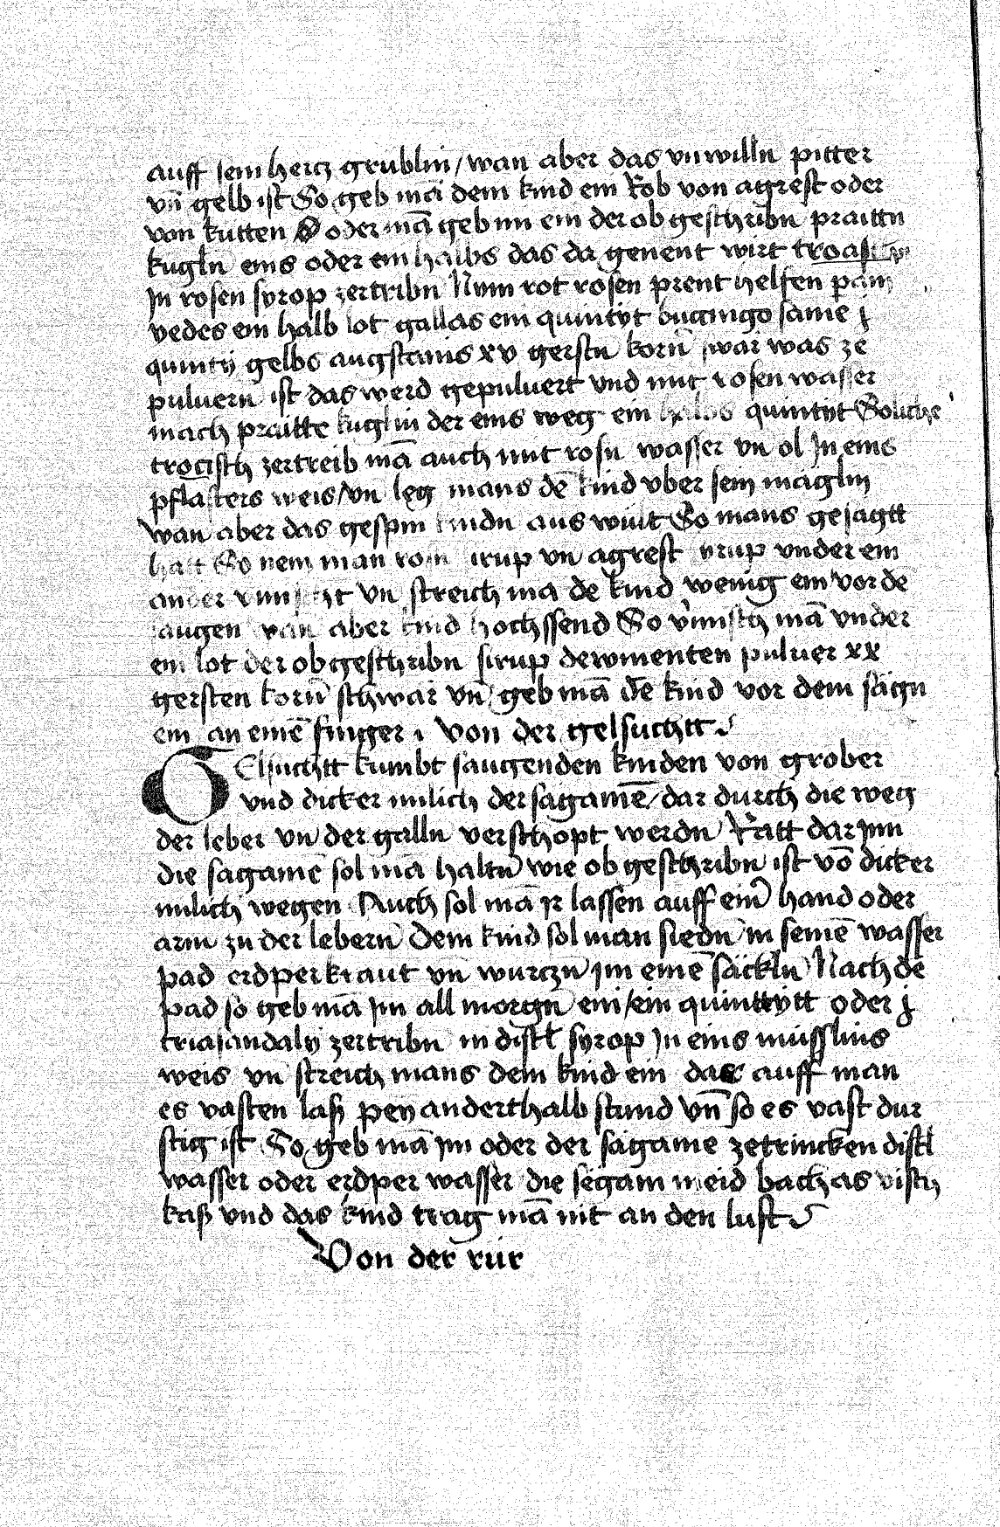 auff sein hercz grublin / wan aber das unwilln pitter
vn̄ gelb ist So geb mā dem kind ein Rob von agrest oder
von kutten oder mā geb im ein der obgeschribn praittn
kugln̄ eins oder ein halbs das da genent wirt
Jn rosen syrop zertribn Nym rot rosen prent helfen pain
yedes ein halb lot gallas ein quintyt same j
quintij gelbs augstains xv gerstn korn̄ swär was ze
puluern ist das werd gepuluert vnd mit rosen wasser
mach praitte kuglin der eins weg ein halbs quintyt Soliche
trocisch zertreib mā auch mit rosn wasser vn̄ ol Jn eins
pflasters weis / vn̄ leg mans dē kind vber sein maglin
wan aber das gespin kindn aus wirlt So mans gesagtt
hatt So nem man rosin sirup vn̄ agrest sirup vnder ein
ander vn̄ streich mā dē kind wenig ein vor dē
saugen wan aber kind hochssend So v̄misch mā vnder
ein lot der obgeschribn sirup dewmenten puluer xx
gersten korn̄ schwar vn̄ geb mā dē kind vor dem sägn
ein an einē finger Von der gelsuchtt
GElsuchtt kumbt saugenden kinden von grober
vnd dicker milich der sagamē / dar durch die weg
der leber vn̄ der galln verschopt werdn Ratt dar jnn
die sagame sol mā haltn wie obgeschribn ist vō dicker
milich wegen Auch sol mā jr lassen auff ein̄ hand oder
arm zu der lebern Dem kind sol man siedn in seinē wasser
pad erdperkraut vn̄ wurczn jm einē säckln Nach dē
pad so geb mā jm all morgn ein / ein quinttytt oder j
triasandalij zertribn in distl syrop Jn eins müsslins
weis vn̄ streich mans dem kind ein das auff man
es vasten lass pey anderthalb stund vn̄ so es vast dur
stig ist So geb mā jm oder der sagame zetrincken distl
wasser oder erdper wasser die segam meid bachas visch
kass vnd das kind trag mā nit an den lufft
Von der rür